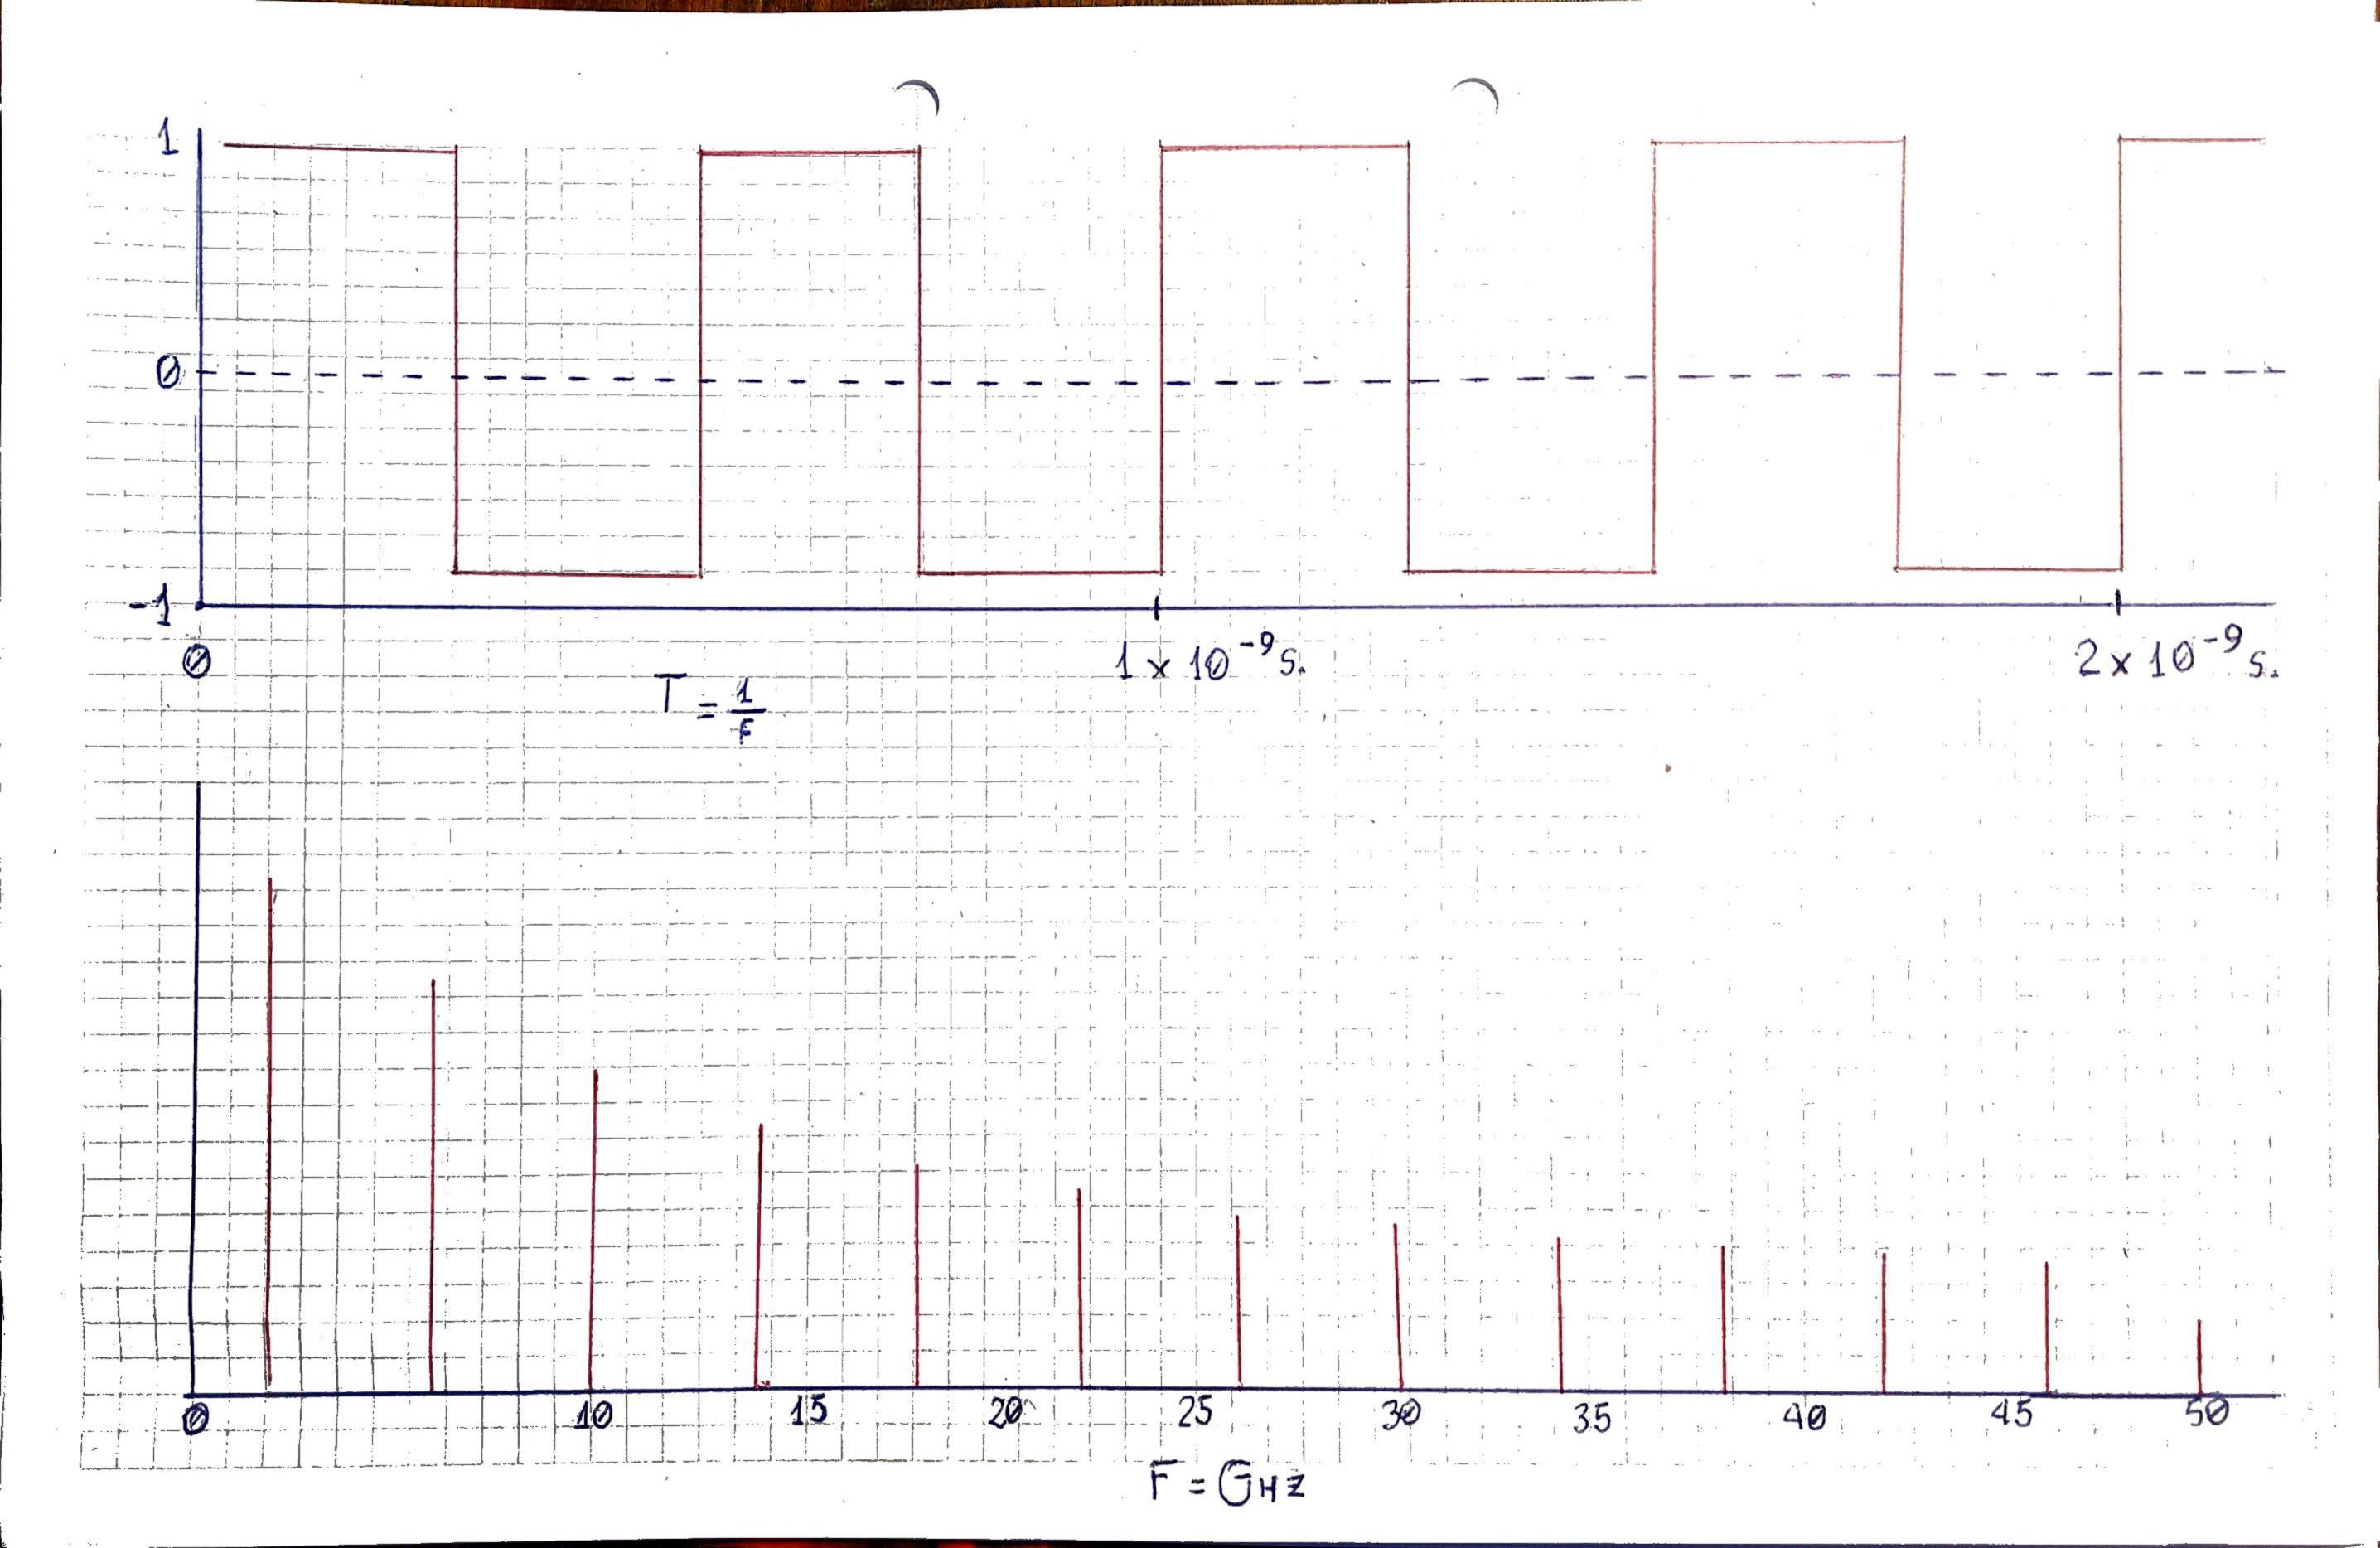 1
0
-1
0
1 x 10⁻⁹ s.
2 x 10⁻⁹ s.
T = 1/F
0 10 15 20 25 30 35 40 45 50
F = GHz